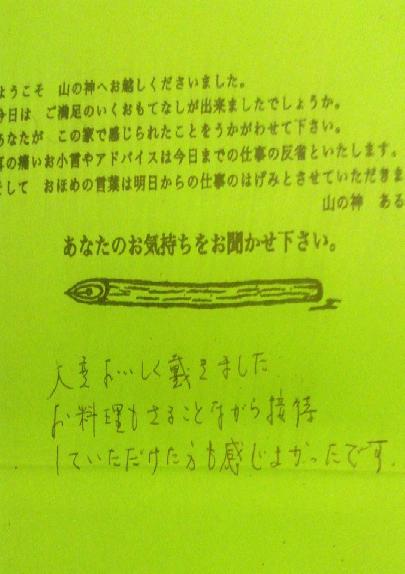 ようこそ 山の神へお越しくださいました。
今日は ご満足のいくおもてなしが出来ましたでしょうか。
あなたが この家で感じられたことをうかがわせて下さい。
耳の痛いお小言やアドバイスは今日までの仕事の反省といたします。
そして おほめの言葉は明日からの仕事のはげみとさせていただきま
山の神 ある
あなたのお気持ちをお聞かせ下さい。
大変おいしく戴きました
お料理もさることながら接待
していただけた方も感じよかったです。